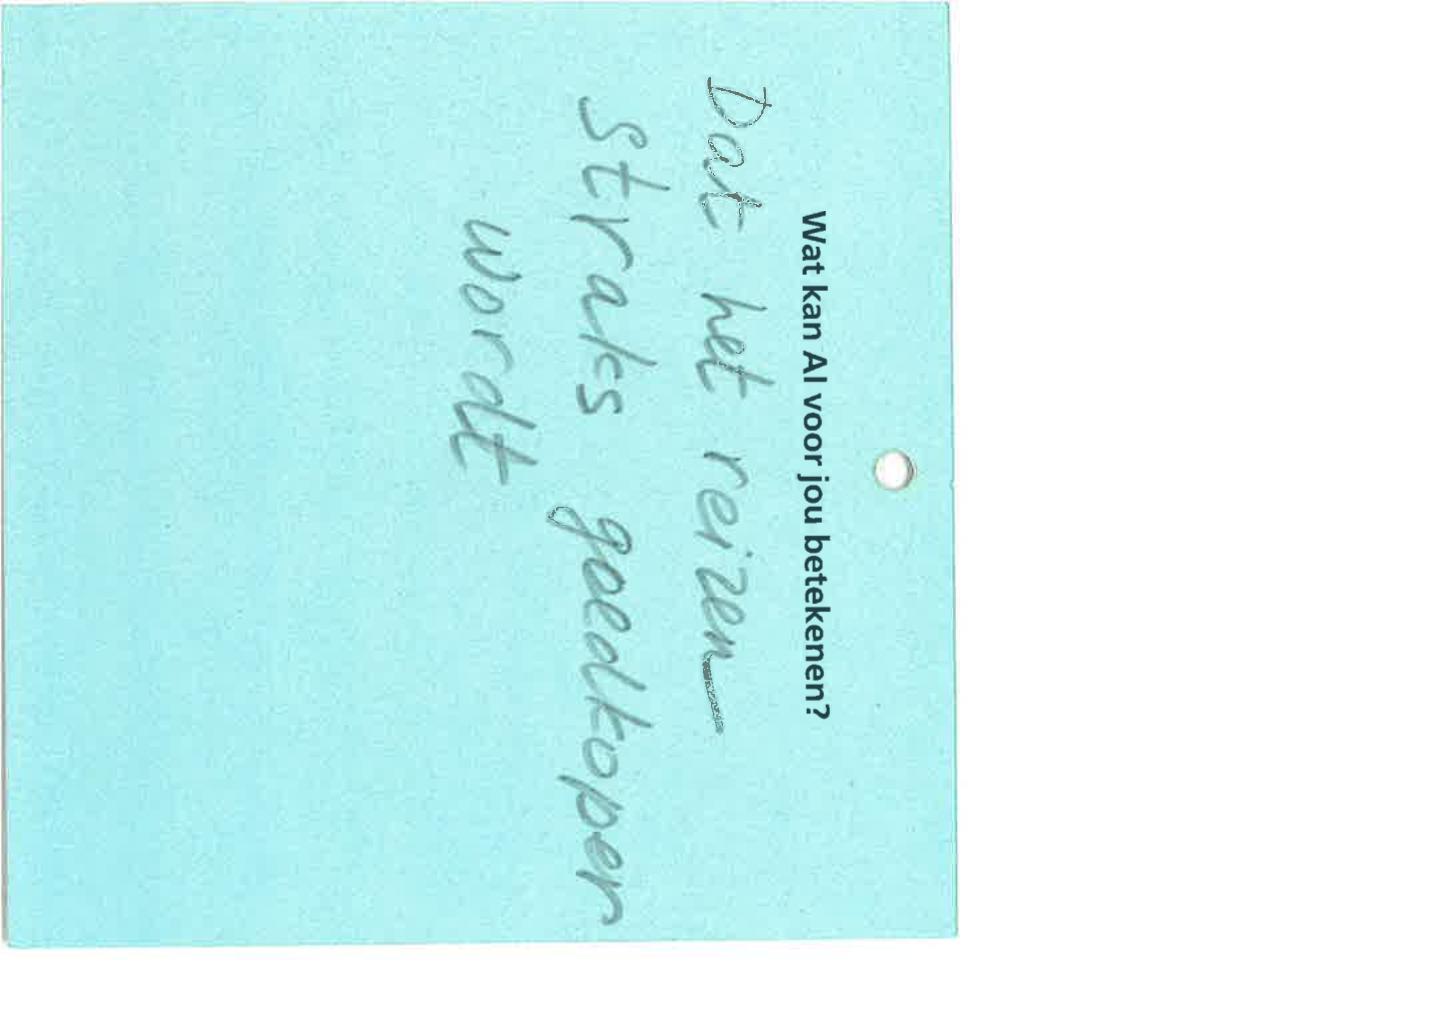 Wat kan AI voor jou betekenen?
Dat het reizen
straks goedkoper
wordt